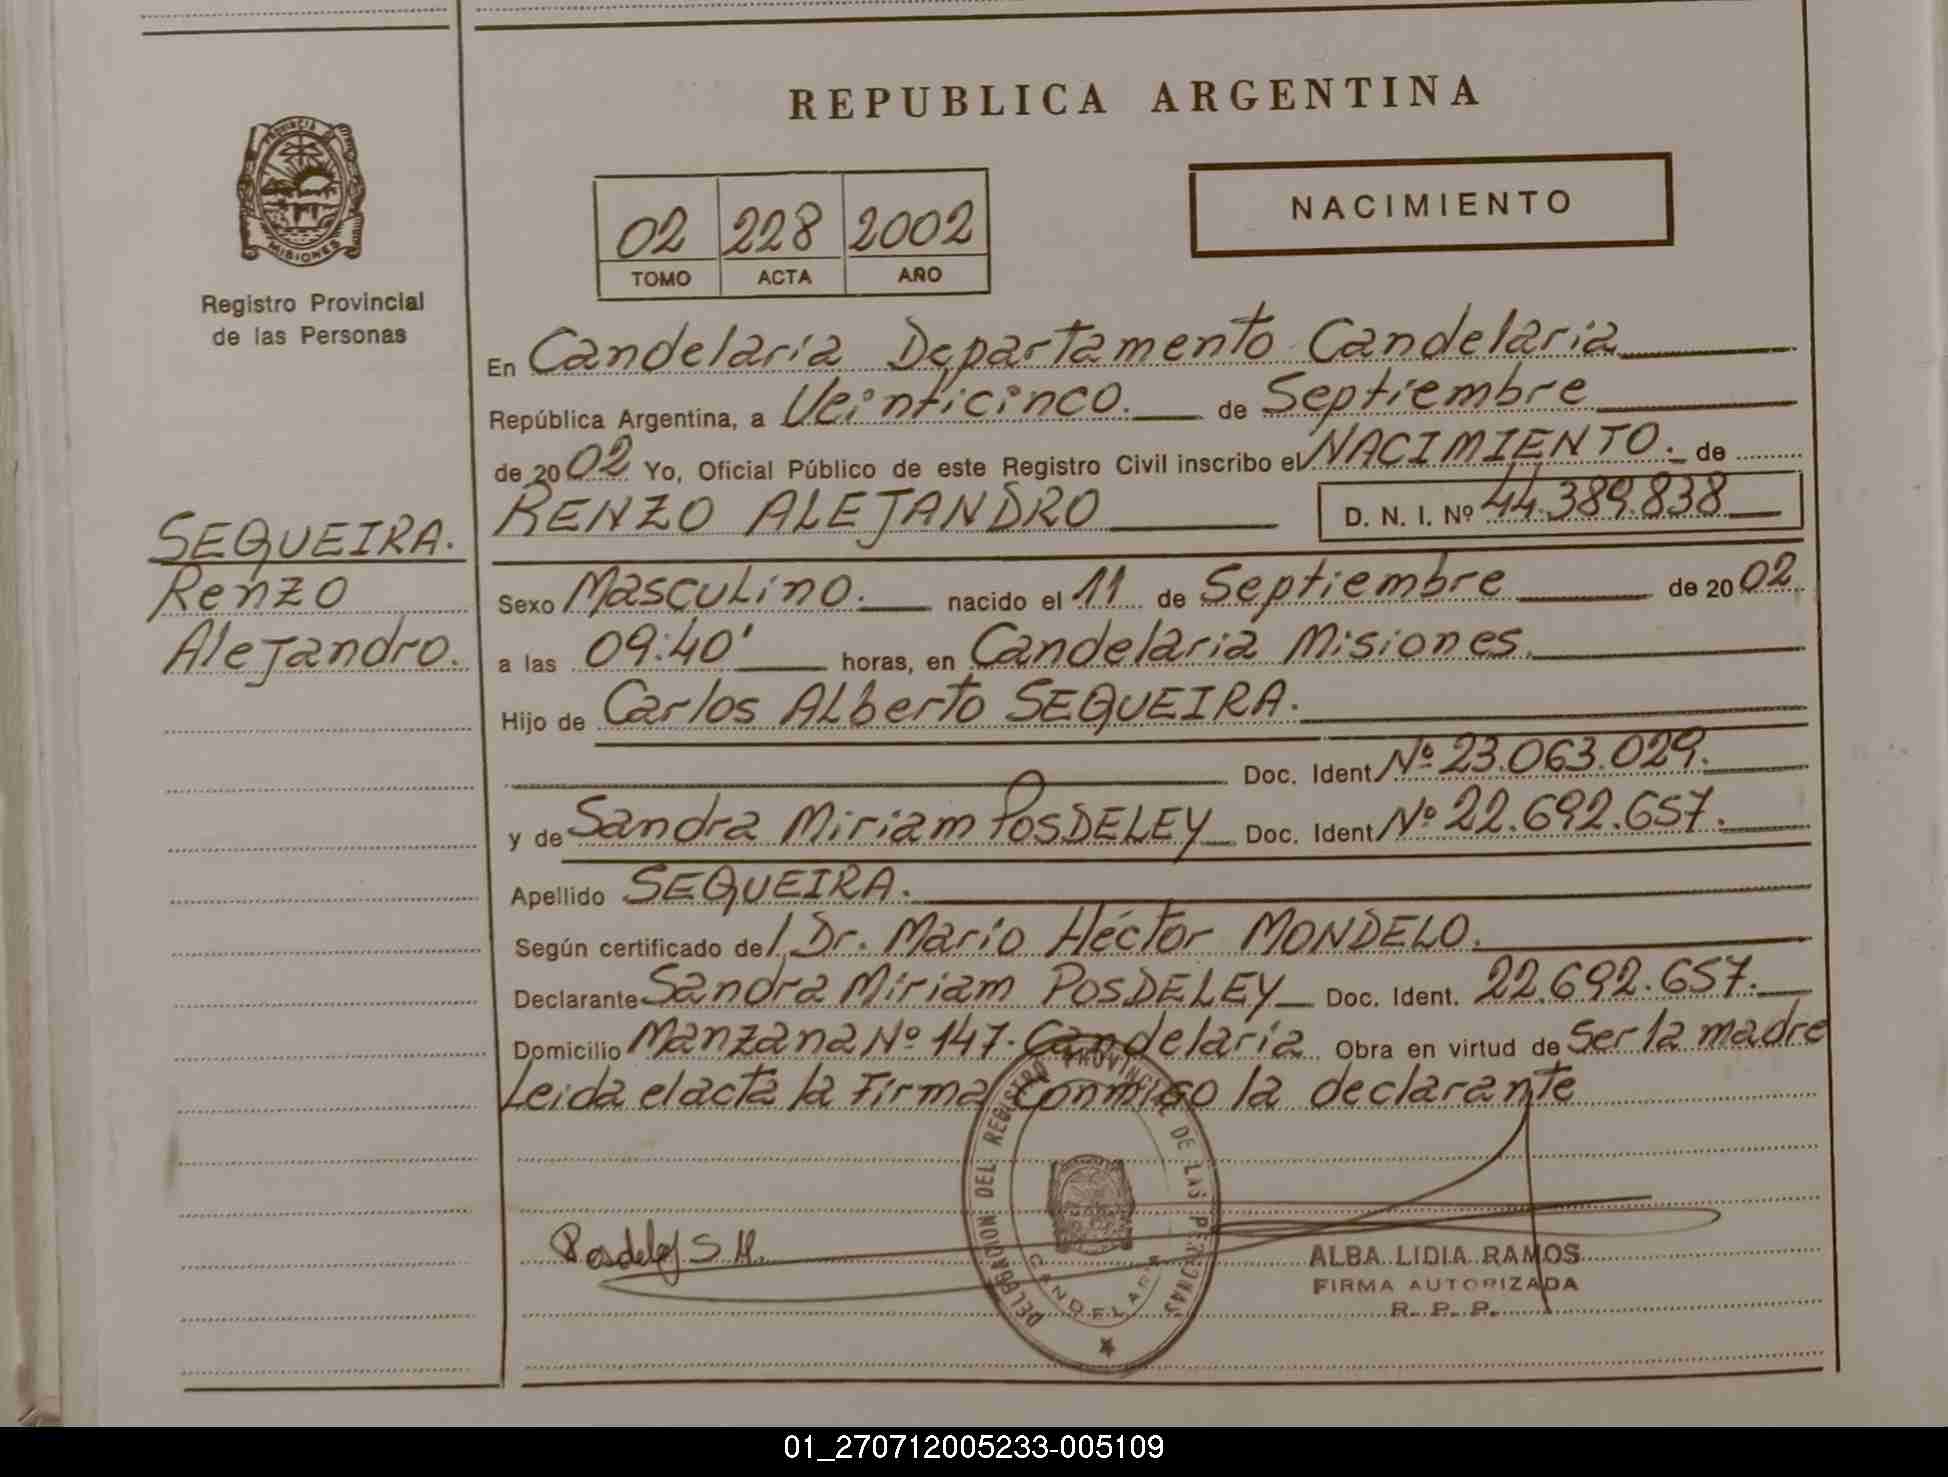 PROVINCIA DE
MISIONES
Registro Provincial
de las Personas
SEQUEIRA.
Renzo
Alejandro.
REPUBLICA ARGENTINA
02 228 2002
TOMO ACTA AÑO
NACIMIENTO
En Candelaria Departamento Candelaria
República Argentina, a Veinticinco. de Septiembre
de 2002 Yo, Oficial Público de este Registro Civil inscribo el NACIMIENTO. de
RENZO ALEJANDRO D. N. I. Nº 44.389.838
Sexo Masculino. nacido el 11 de Septiembre de 2002
a las 09:40' horas, en Candelaria Misiones.
Hijo de Carlos Alberto SEQUEIRA.
Doc. Ident Nº 23.063.029.
y de Sandra Miriam POSDELEY Doc. Ident Nº 22.692.657.
Apellido SEQUEIRA.
Según certificado del Dr. Mario Héctor MONDELO.
Declarante Sandra Miriam POSDELEY Doc. Ident. 22.692.657.
Domicilio Manzana Nº 147. Candelaria Obra en virtud de Ser la madre
Leida el acta la Firma Conmigo la declarante
DELEGACION DEL REGISTRO PROVINCIAL DE LAS PERSONAS
CANDELARIA
Posdeley S. M.
ALBA LIDIA RAMOS
FIRMA AUTORIZADA
R. P. P.
01_270712005233-005109